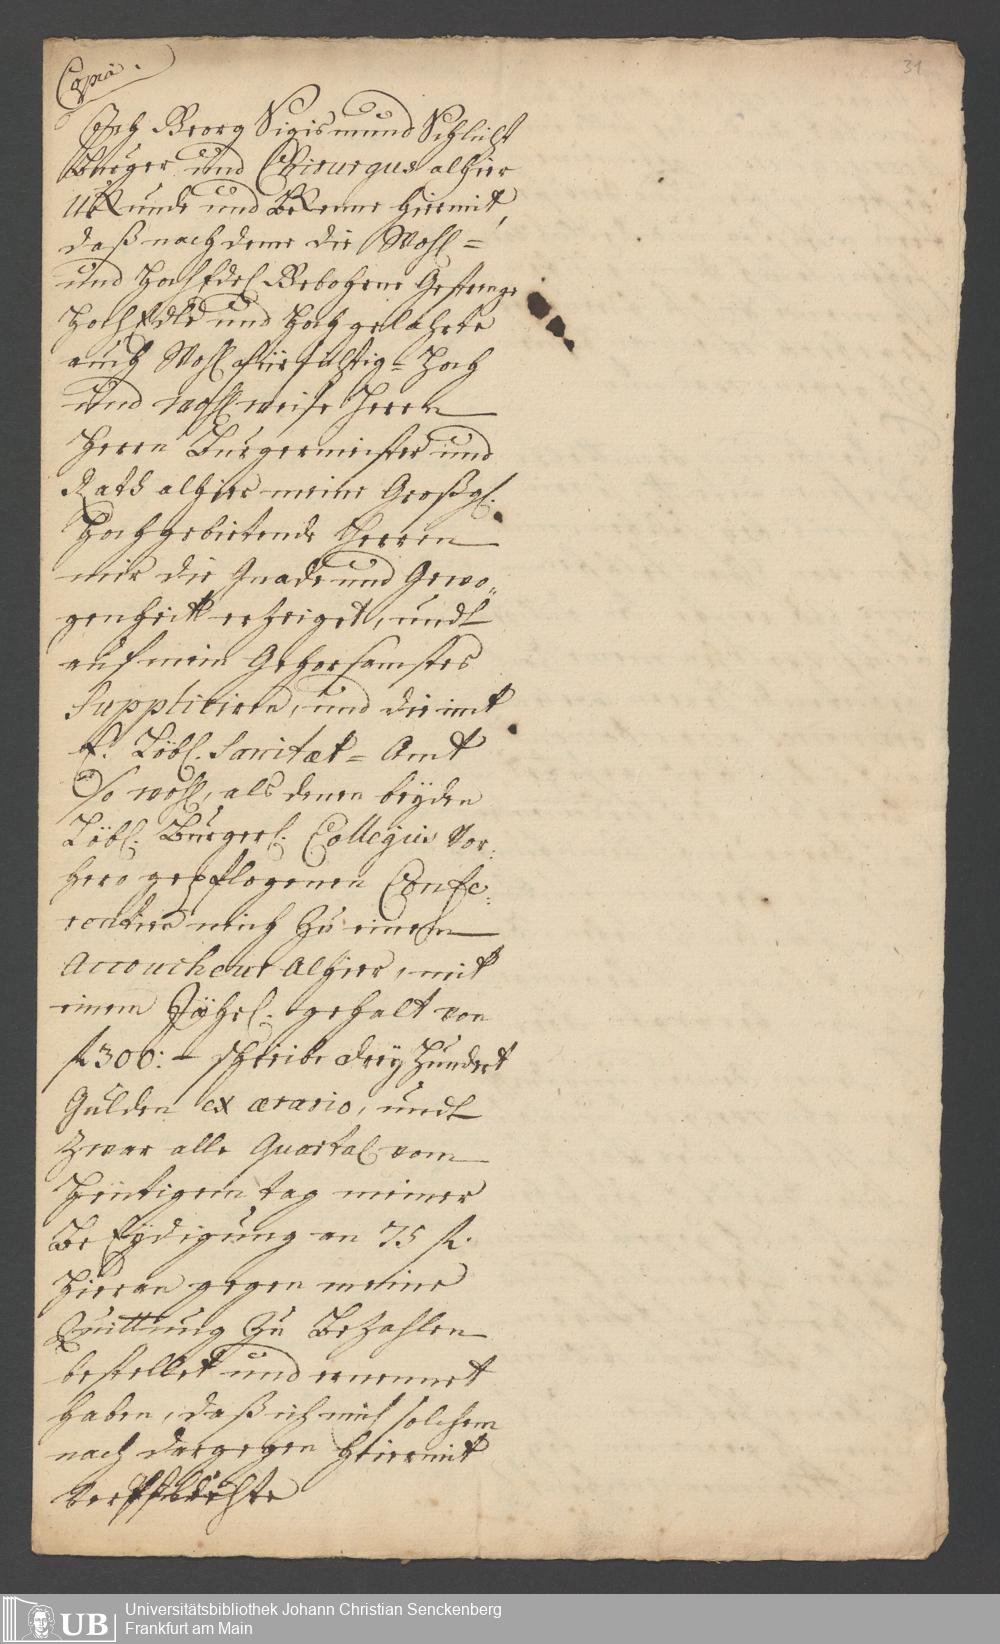 Copia.
31
Ich Georg Sigismund Schlicht
Burger und Chirurgus alhier
Uhrkunde und Bekenne hiermit,
daß nachdeme die Wohl=
und HochEdel Gebohrne Gestrenge
HochEdle und Hochgelahrte
auch Wohlfürsichtig= Hoch
und wohlweise Herrn
Herrn Burgermeister und
Rath alhier meine Großg.
Hochgebietende Herren
mir die Gnade und Gewo,,
genheit erzeiget, undt
auf mein Gehorsamstes
Suppliciren, und die mit
E. Löbl. Sanitæt= Amt
so wohl, als denen beyden
Löbl. Burgerl. Collegiis Vor:
hero gepflogenen Confe:
rentien mich zu einem
Accoucheur alhier, mit
einem Jährl. gehalt von
fl 300:– schreibe dreyhundert
Gulden ex ærario, undt
zwar alle Quartal vom
Heutigem tag meiner
BeEydigung an 75 fl.
hieran gegen meine
Quittung zu Bezahlen
bestellet und ernennet
haben, daß ich mich solchem
nach dargegen hiermit
verpflichte
UB
Universitätsbibliothek Johann Christian Senckenberg
Frankfurt am Main